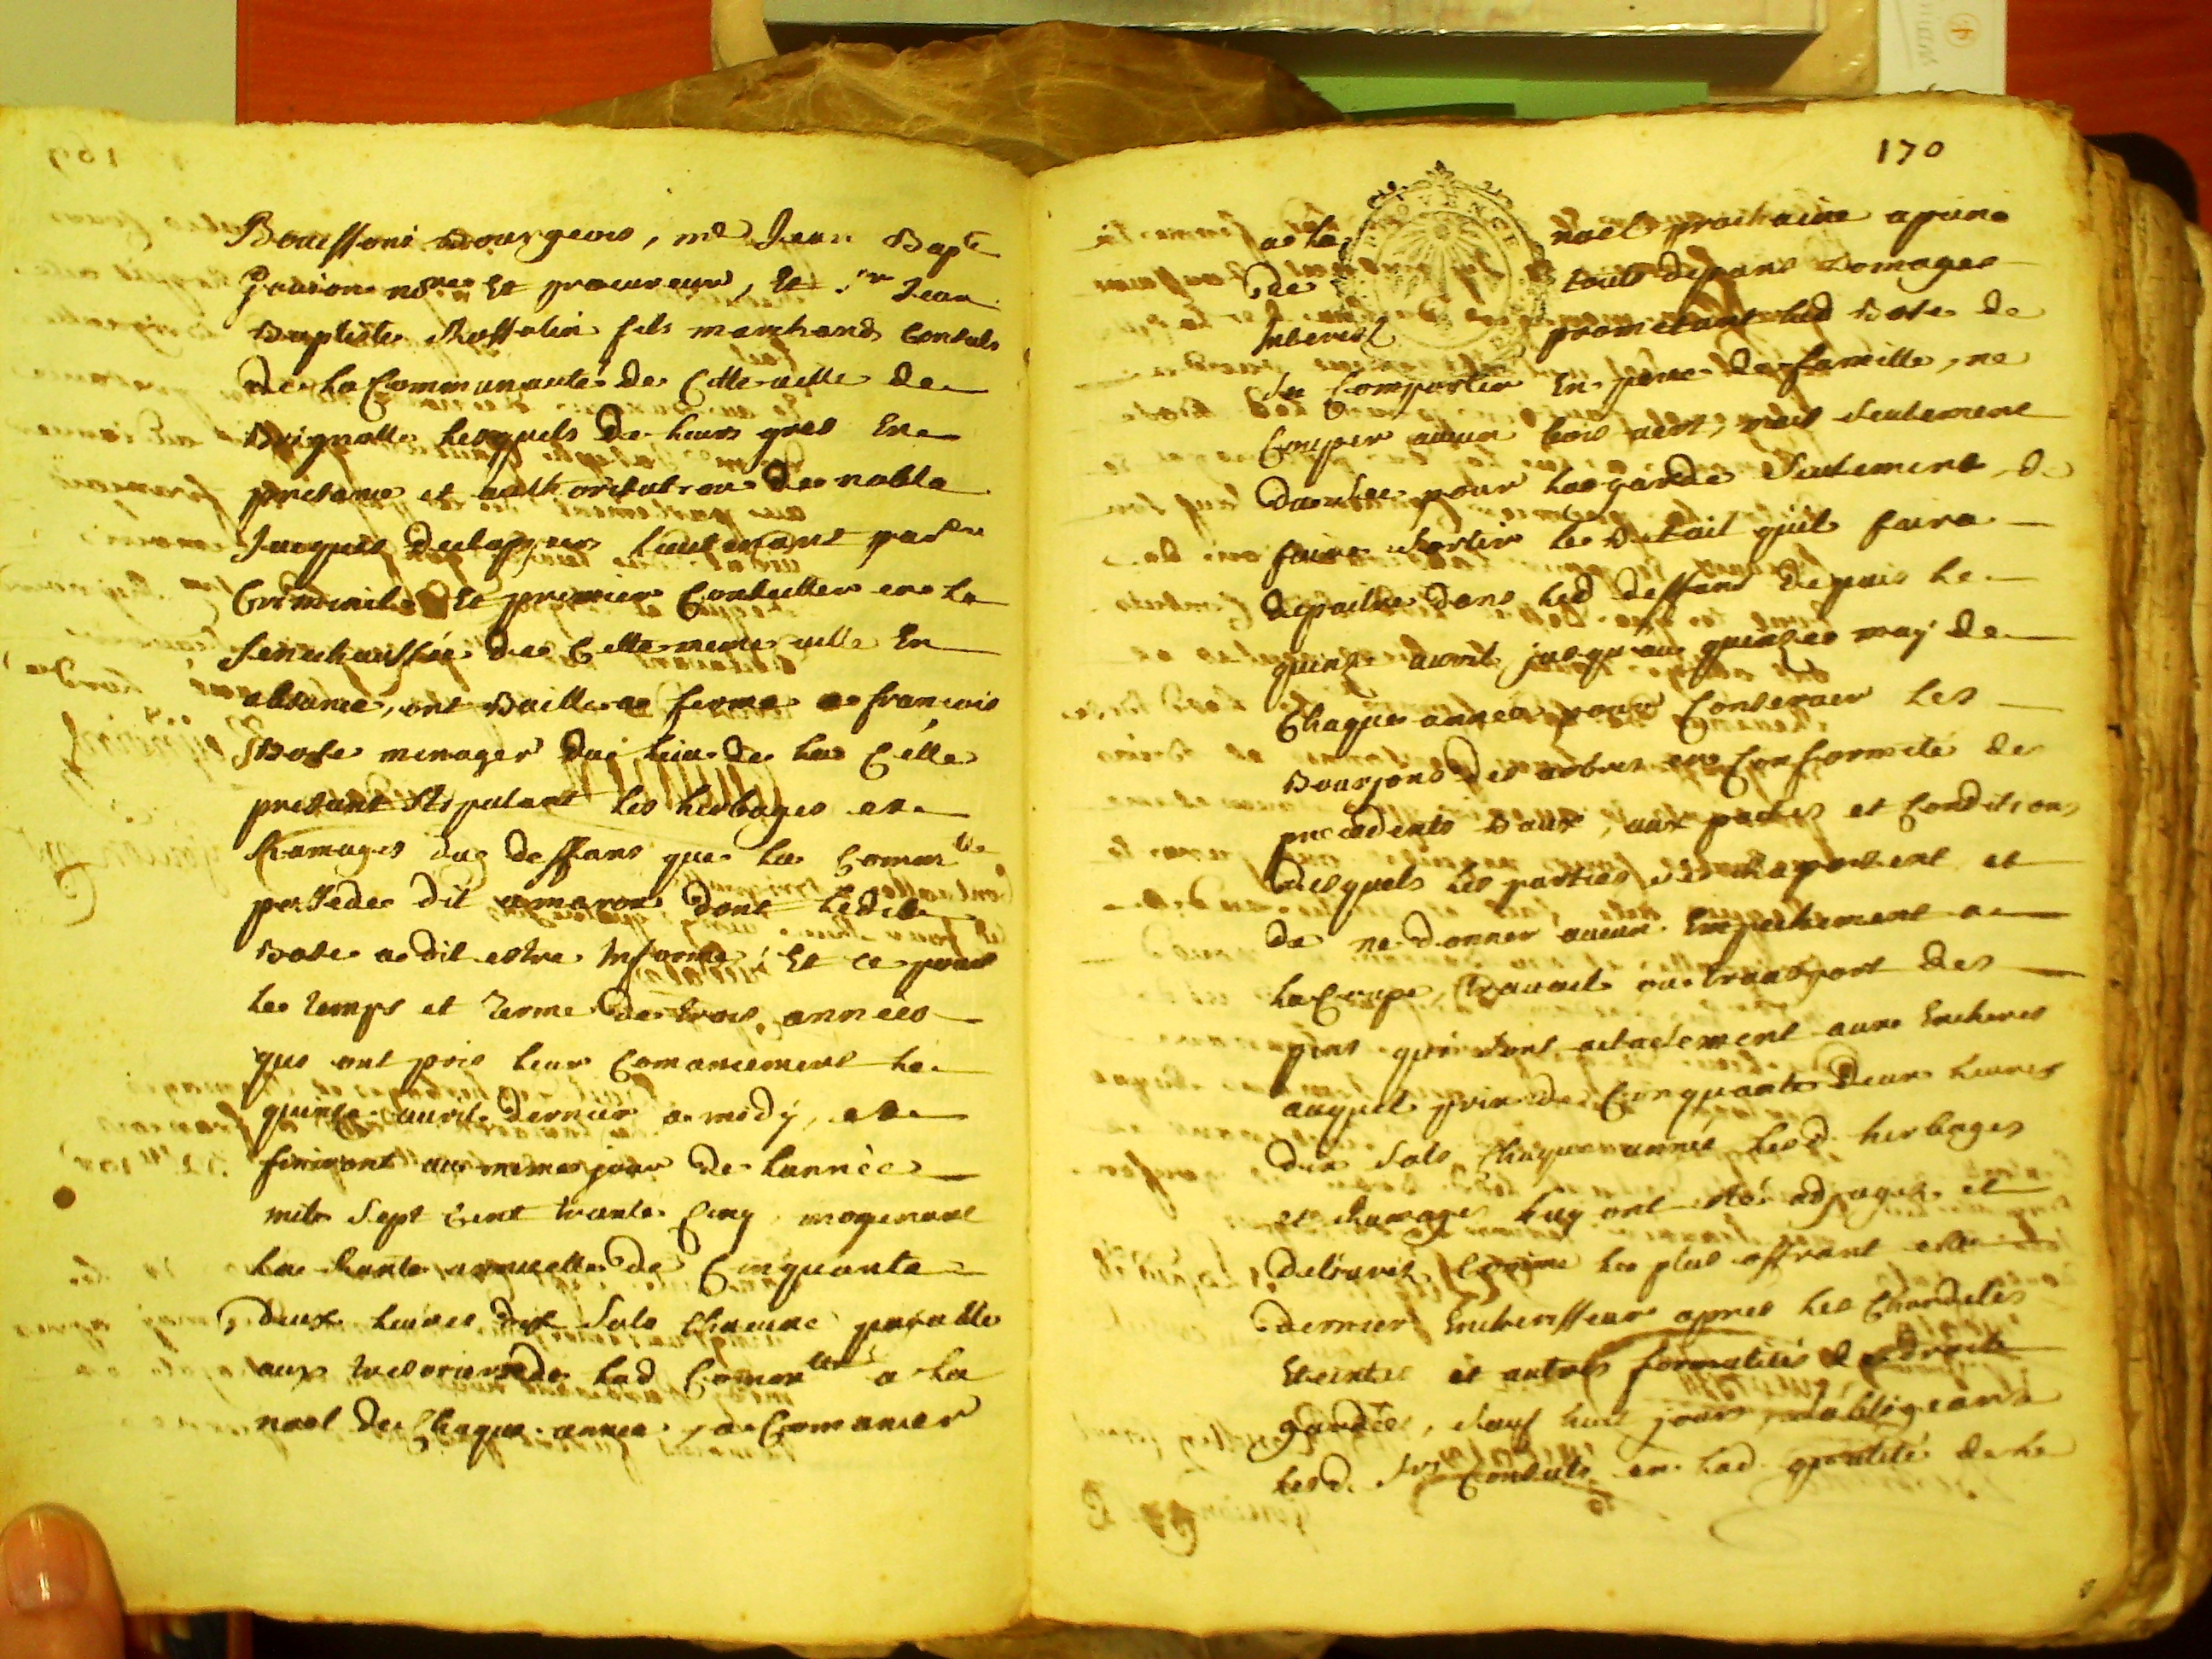 Bouissoni Bourgeois, me Jean Bapte
Goujon nore Et procureur, Et sr Jean
Baptiste Rossolin fils marchand Consuls
de La Communauté de Cette ville de
Brignolle Lesquels de Leurs gres En
presance et authorisation de noble
Jacques Lieutenant parer
Criminel Et premier Conseiller en La
Senechaussée de Cette meme ville En
absance, ont Baille a ferme a francois
Bose menager du Lieu de La Celle
presant Stipulant Les herbages et
Ramages du deffans que La Comunté
possede dit amaron dont Ledit
Bose a dit estre Informé, Et ce pour
Le temps et terme de trois années
qui ont pris Leur Comancement Le
quinze avril dernier a midy, et
finiront au meme jour de Lannée
mil Sept Cent trante Cinq moyenant
La Rante annuelle de Cinquante
deux Livres dix Sols Chacune payable
aux Tresoriers de Lad Comunté a La
noel de Chaque année, a Comancer
170
PROVENCE
a La noel prochaine a peine
de touts depans Domages
Interest promettant Led Bose de
Se Comporter En pere de famille, ne
Couper aucun bois vert, mais Seulement
pour La garde Seulement, de
faire Sortir Le Betail quil faira
depaitre dans Led deffans depuis Le
quinze avril jusqu'au quinze may de
Chaque année pour Conserver Les
Bourjons des arbres en Conformité des
precedents Baux, aux pactes et Conditions
desquels Les parties Se Raportent et
de ne donner aucun Empechement a
La Coupe, travail ou transport des
pins qui Sont actuelement aux Encheres
auquel prix de Cinquante Deux Livres
dix Sols Chaque année Lesd. herbages
et Ramages Luy ont été adjugés et
delivrés Comme Le plus offrant et
dernier Encherisseur apres Les Chandeles
Eteintes et autres formalités de droit
gardées, Sauf huit jours, Sobligeant
Lesd. Srs Consuls en Lad qualité de Le